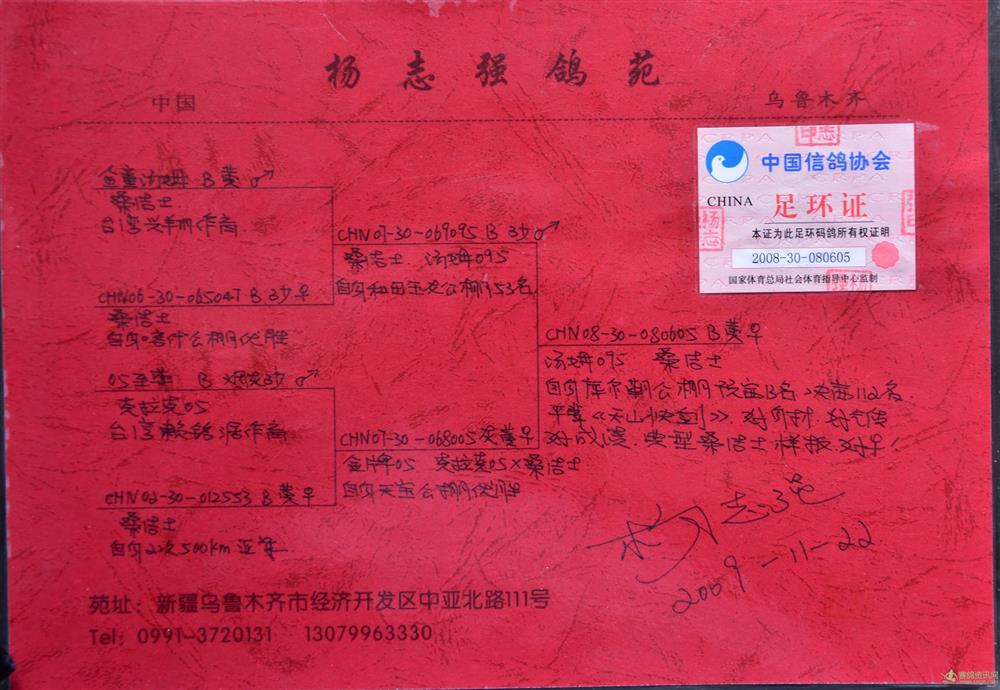 杨志强鸽苑
中国
乌鲁木齐
中国信鸽协会
CHINA 足环证
本证为此足环码鸽所有权证明
2008-30-080605
国家体育总局社会体育指导中心监制
金童汤姆 B 黄 ♂
桑杰士
台湾 作商
CHN06-30-065047 B 沙 ♀
桑杰士
自身 公棚优胜
CHN07-30-069095 B 沙 ♂
桑杰士 汤姆095
自身和田玉龙公棚53名
05 B ♂
克拉克05
台湾 作商
CHN03-30-012553 B 黄 ♀
桑杰士
自身2次500km亚军
CHN07-30-068005 灰黄 ♀
金牌05 克拉克05×桑杰士
自身天宝公棚优胜
CHN08-30-080605 B 黄 ♀
汤姆095 桑杰士
自身库尔勒公棚预赛13名 决赛112名
平辈《天山快剑》
典型桑杰士样板
杨志强
2009-11-22
苑址：新疆乌鲁木齐市经济开发区中亚北路111号
Tel：0991-3720131 13079963330
赛鸽资讯网